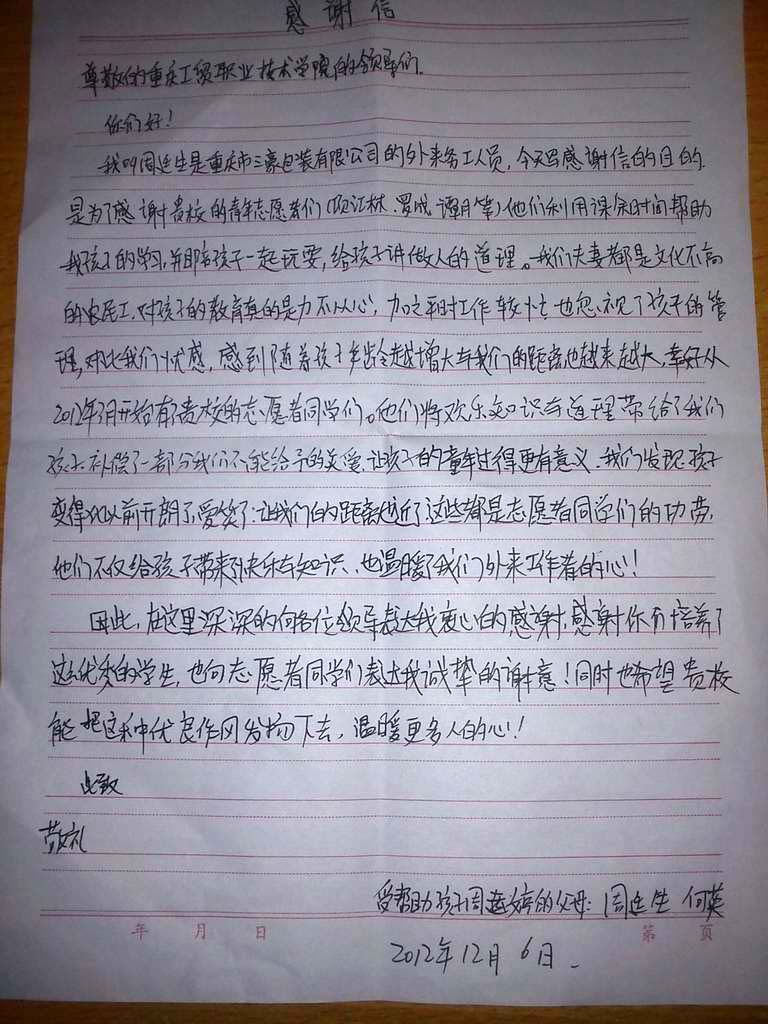 感谢信
尊敬的重庆工贸职业技术学院的领导们.
你们好!
我叫周廷生是重庆市三豪包装有限公司的外来务工人员,今天写感谢信的目的.
是为了感谢贵校的青年志愿者们(项江林.罗成.谭月等)他们利用课余时间帮助
我孩子的学习,并陪孩子一起玩耍,给孩子讲做人的道理。我们夫妻都是文化不高
的农民工.对孩子的教育真的是力不从心,加之平时工作较忙.也忽视了孩子的管
理,对此我们忧感,感到随着孩子年龄越增大与我们的距离也越来越大,幸好从
2012年3月开始有了贵校的志愿者同学们。他们将欢乐知识与道理带给了我们
孩子.补偿了一部分我们不能给予的关爱.让孩子的童年过得更有意义.我们发现孩子
变得比以前开朗了,爱笑了.让我们的距离也近了这些都是志愿者同学们的功劳,
他们不仅给孩子带来了快乐与知识、也温暖了我们外来工作者的心!
因此,在这里深深的向各位领导表达我衷心的感谢,感谢你们培养了
这么优秀的学生,也向志愿者同学们表达我诚挚的谢意!同时也希望贵校
能把这种优良作风发扬下去,温暖更多人的心!
此致
敬礼
受帮助孩子周婷的父母:周廷生 何英
年 月 日 第 页
2012年12月6日.